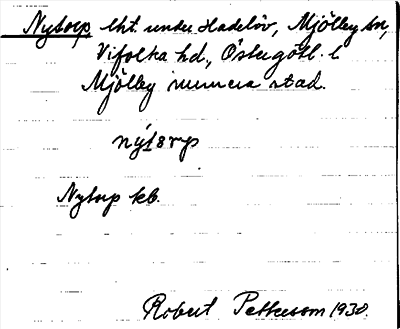 Nytorp lht. under Hadelöv, Mjölby sn,
Vifolka hd., Östergötl. l
Mjölby numera stad.
Nytorp kb.
Robert Pettersson 1930.